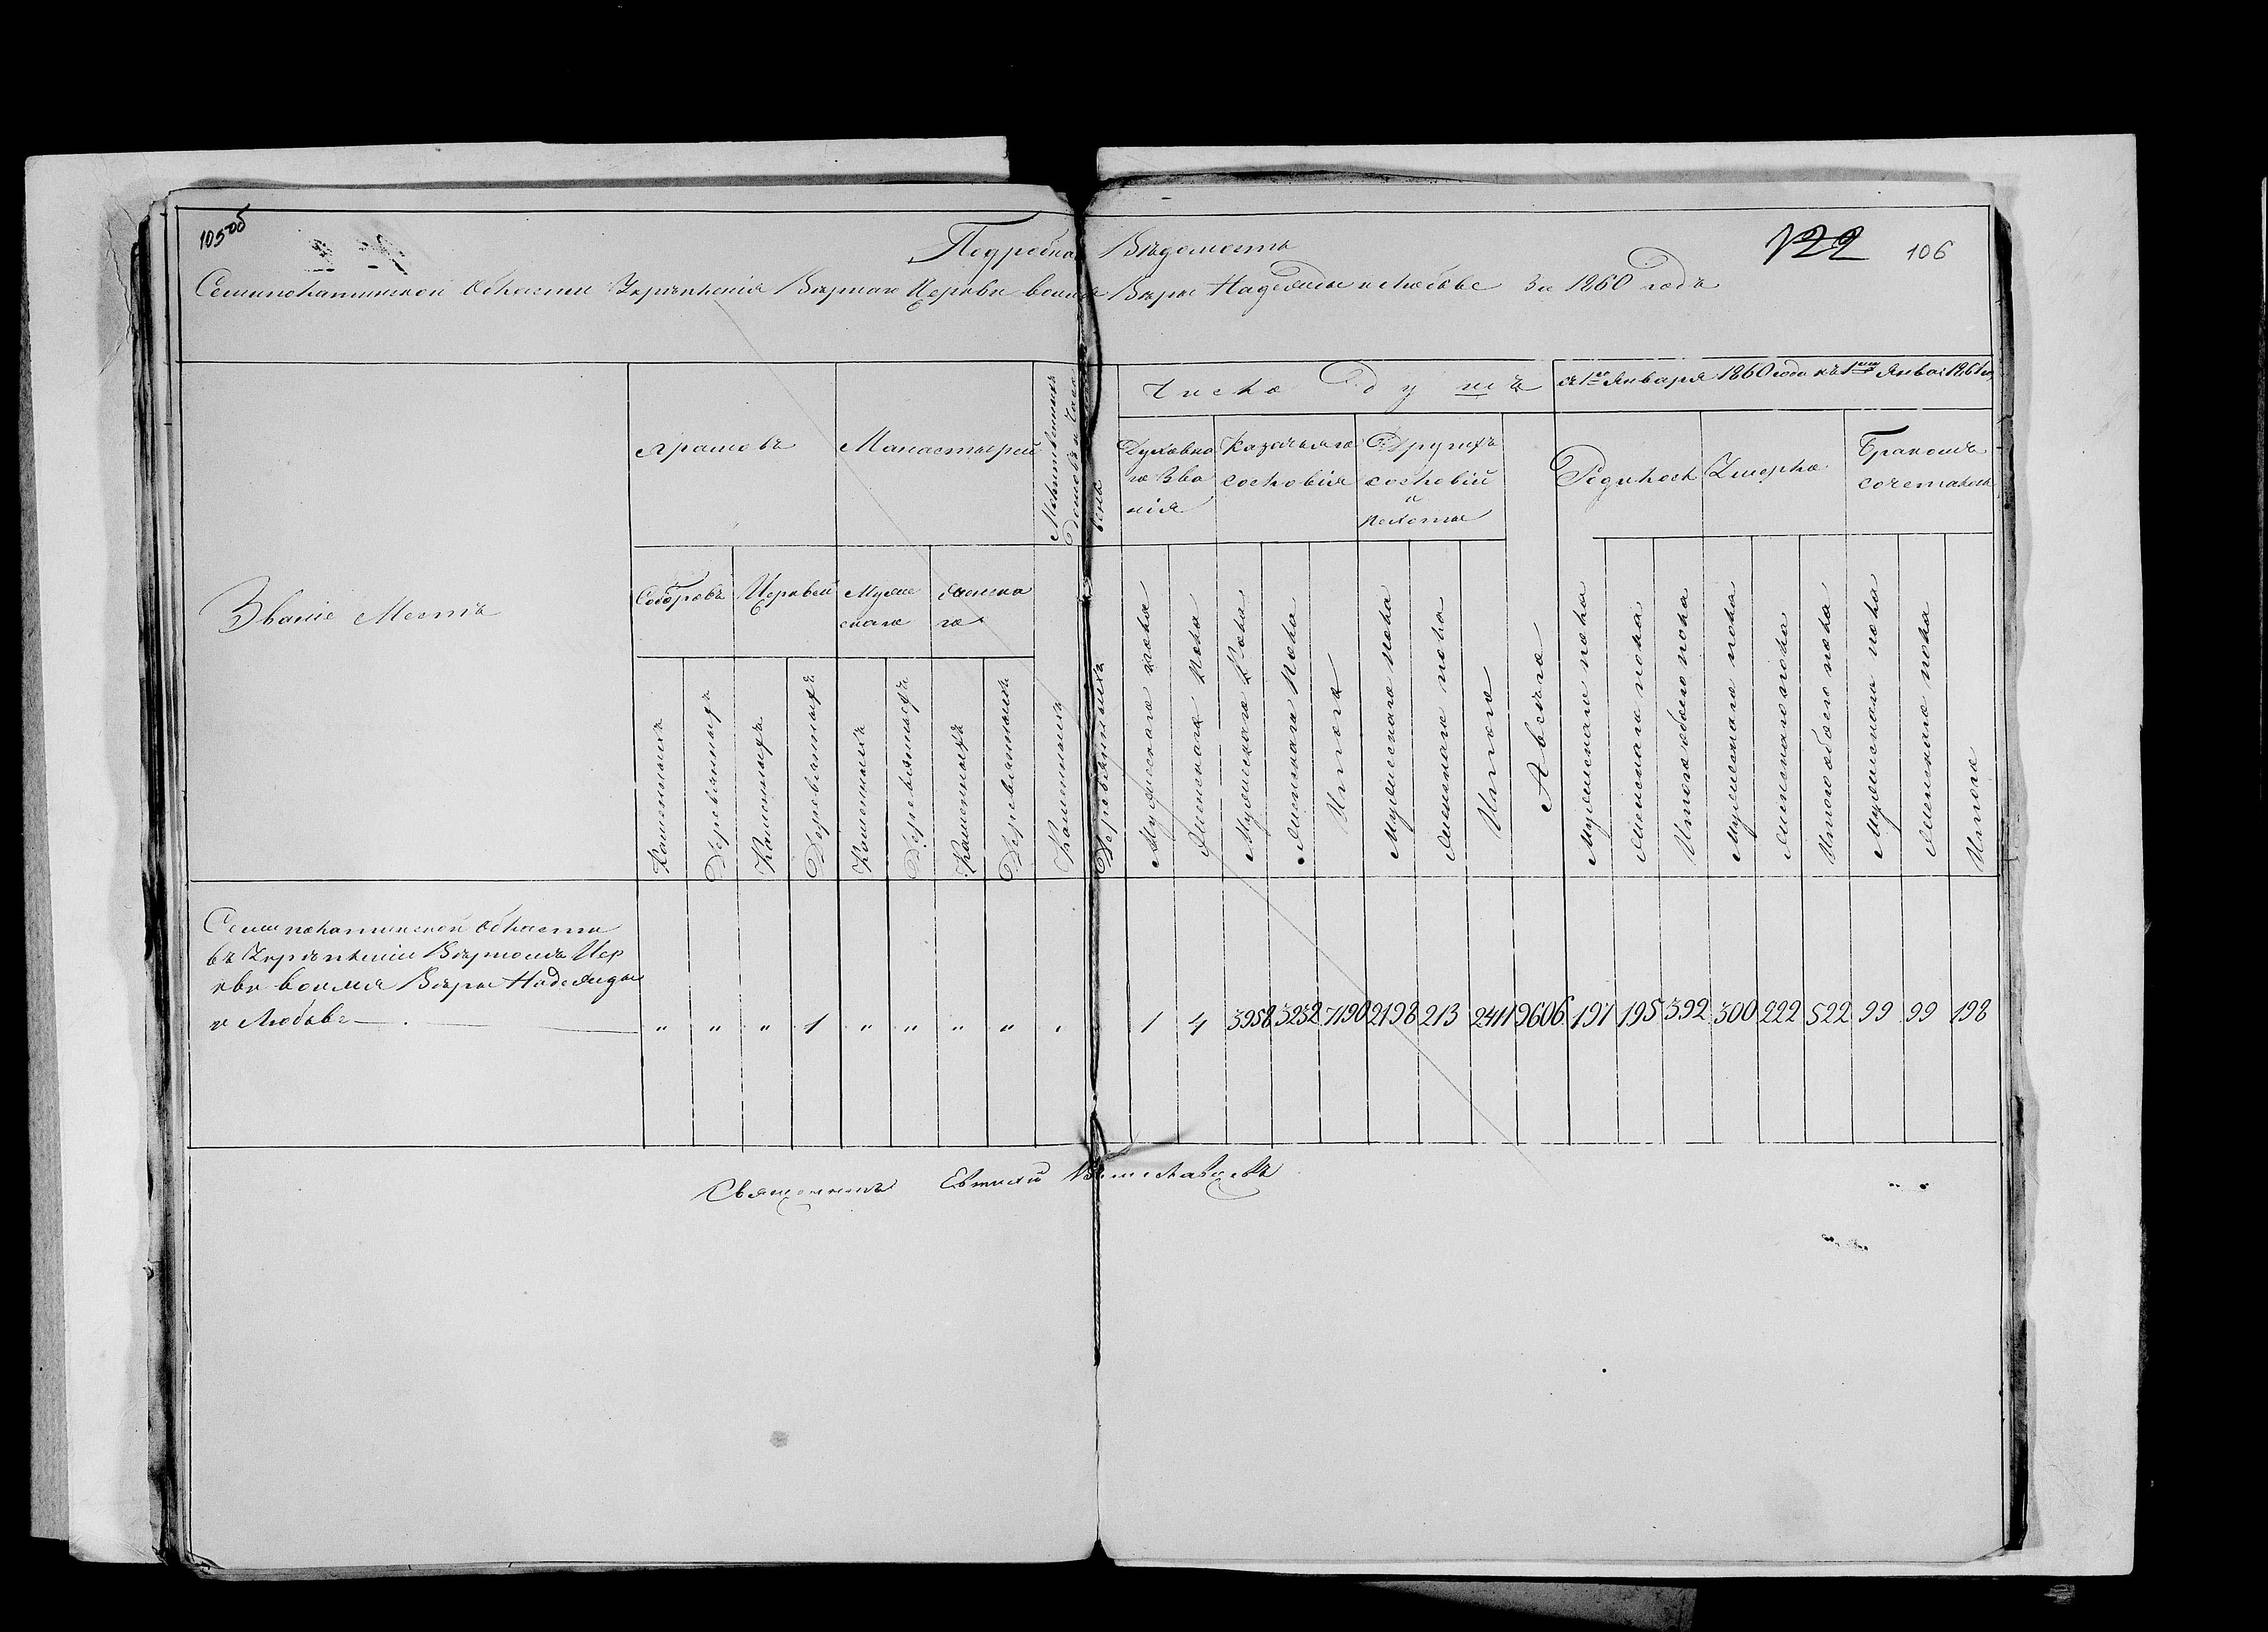 105об
122 106
Подробная Вѣдомость
Семипалатинской Области Укрѣпленія Вѣрнаго Церкви во имя Вѣры Надежды и Любове За 1860 годъ
Званіе Местъ
Храмовъ
Манастырей
Молитвенныхъ
Домовъ и Часо
вень
Число Душъ
съ 1го Января 1860 года къ 1му Янва: 1861 го
Соборовъ
Церквей
Муже
скаго
Женска
го
Духовна
го Зва
нія
Казачьяго
сословія
Другихъ
сословій
и
пехоты
Родилось
Умерло
Бракомъ
сочеталось
Каменныхъ
Деревянныхъ
Каменныхъ
Деревянныхъ
Каменныхъ
Деревянныхъ
Каменныхъ
Деревянныхъ
Каменныхъ
Деревянныхъ
Мужескаго пола
Женскаго пола
Мужескаго Пола
Женскаго Пола
Итого
Мужескаго пола
Женскаго пола
Итого
А всего
Мужескаго пола
Женскаго пола
Итого обоего пола
Мужескаго пола
Женскаго пола
Итого обоего пола
Мужескаго пола
Женскаго пола
Итого
Семипалатинской Области
въ Укрѣпленіи Вѣрномъ Цер
кви во имя Вѣры Надежды
и Любовь — „ „ „ 1 „ „ „ „ „ 1 4 3958 3232 7190 2198 213 2411 9606 197 195 392 300 222 522 99 99 198
Священникъ Евтихій